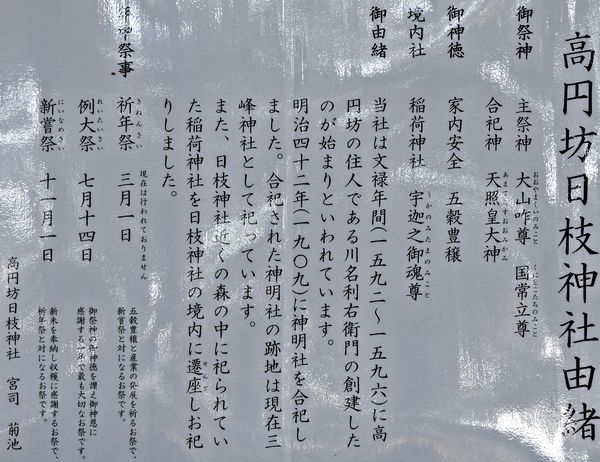 高円坊日枝神社由緒
御祭神 主祭神 大山咋尊 国常立尊
おおやまくいのみこと くにとこたちのみこと
合祀神 天照皇大神
あまてらすおおみかみ
御神徳 家内安全 五穀豊穣
境内社 稲荷神社 宇迦之御魂尊
うかのみたまのみこと
御由緒 当社は文禄年間(一五九二~一五九六)に高
円坊の住人である川名利右衛門の創建した
のが始まりといわれています。
明治四十二年(一九〇九)に神明社を合祀し
ました。合祀された神明社の跡地は現在三
峰神社として祀っています。
また、日枝神社近くの森の中に祀られてい
た稲荷神社を日枝神社の境内に遷座しお祀
せんざ
りしました。
年中祭事 祈年祭 三月一日
きねんさい
現在は行われておりません
五穀豊穣と産業の発展を祈るお祭で、
新嘗祭と対になるお祭です。
例大祭 七月十四日
れいたいさい
御祭神の御神徳を讃え御神恩に
感謝する一年で最も大切なお祭です。
新嘗祭 十一月一日
にいなめさい
新米を奉納し収穫に感謝するお祭で、
祈年祭と対になるお祭です。
高円坊日枝神社 宮司 菊池